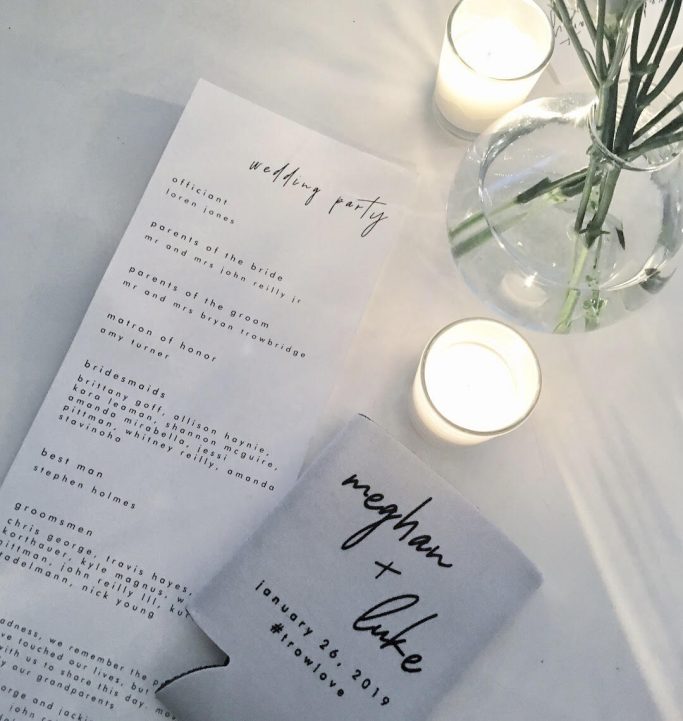 wedding party
officiant
loren jones
parents of the bride
mr and mrs john reilly jr
parents of the groom
mr and mrs bryan trowbridge
matron of honor
amy turner
bridesmaids
brittany goff, allison haynie,
kara leaman, shannon mcguire,
amanda mirabella, jessi
pittman, whitney reilly, amanda
stavinoha
best man
stephen holmes
groomsmen
chris george, travis hayes,
korthauer, kyle magnus,
pittman, john reilly lll,
nick young
we remember the
touched our lives, but
with us to share this day.
our grandparents
meghan
+
luke
january 26, 2019
#trowlove